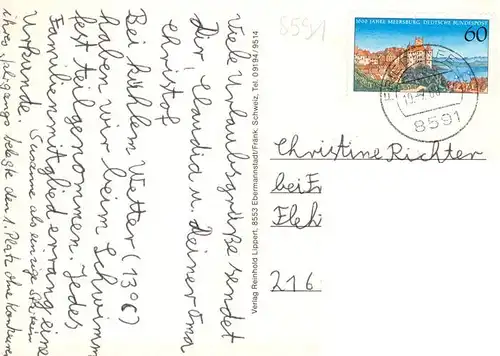 Viele Urlaubsgrüße sendet
Dir, Claudia u. Deiner Oma
Christof
Bei kühlem Wetter (13°C)
haben wir beim Schwimm
fest teilgenommen. Jedes
Familienmitglied errang eine
Urkunde.
Susanne als einzige
ihres Jahrgangs belegte den 1. Platz ohne
Verlag Reinhold Lippert, 8553 Ebermannstadt/Fränk. Schweiz, Tel. 09194/9514
8591
1000 JAHRE MEERSBURG, DEUTSCHE BUNDESPOST
60
8591
Christine Richter
bei
216